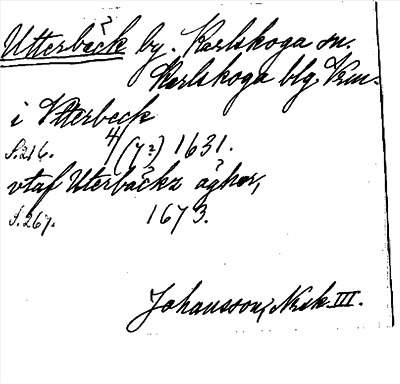 Utterbäck by. Karlskoga sn.
Karlskoga blg Vrm.
i Vtterbeck
S. 216. 4/(7?) 1631.
vtaf Uterbäckz äghor,
S. 267. 1673.
Johansson, Nsk. III.